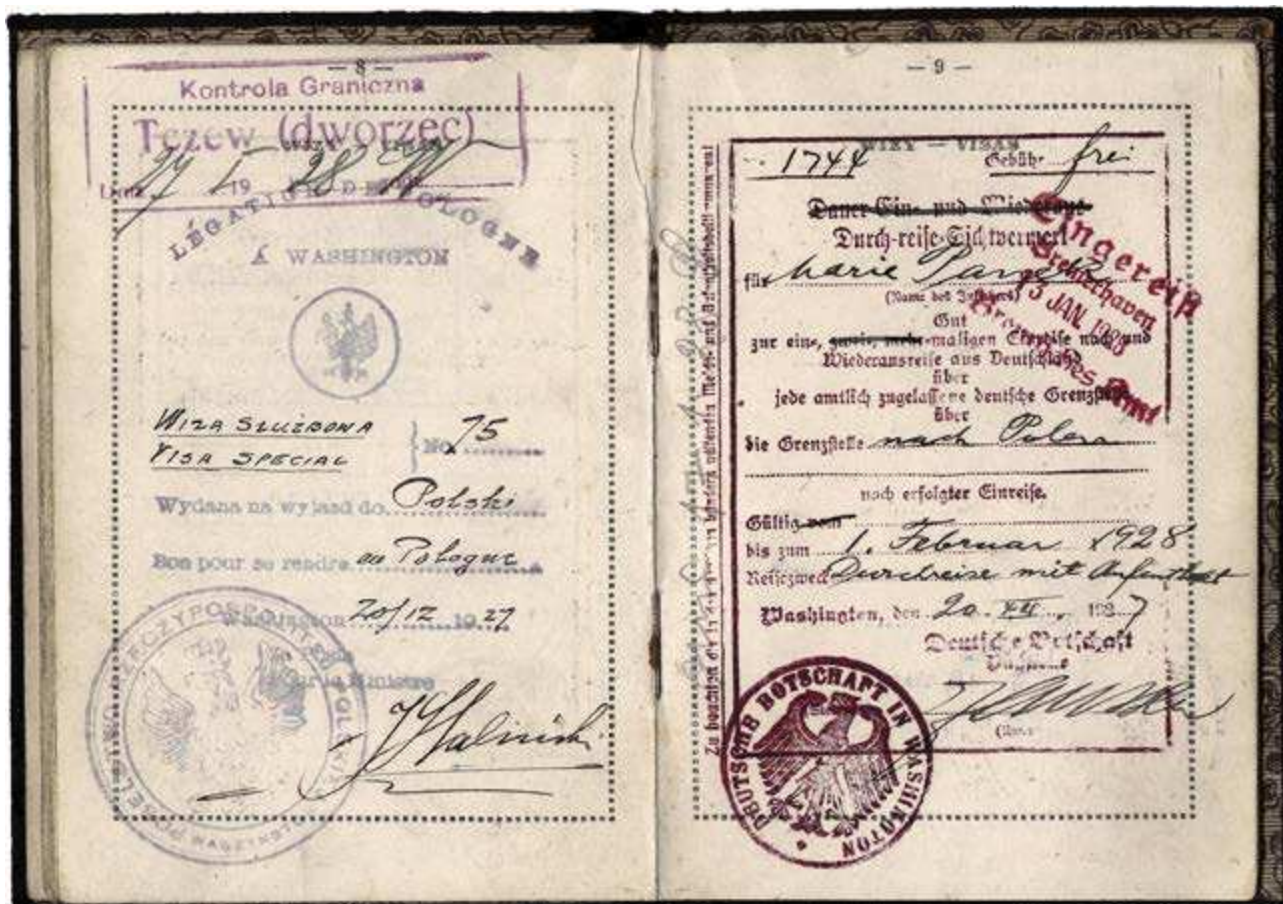 — 8 —
Kontrola Graniczna
Tczew (dworzec)
19 28
LÉGATION DE POLOGNE
À WASHINGTON
WIZA SŁUŻBOWA
VISA SPECIAL
No 75
Wydana na wyjazd do Polski
Bon pour se rendre en Pologne
Washington 20/12 1927
le Ministre
POSELSTWO RZECZYPOSPOLITEJ POLSKIEJ
— 9 —
WIZY — VISAS
1744 Gebühr frei
Dauer-Ein- und
Durch-reise-Sichtvermerk
für Marie
(Name des Inhabers)
Gut
zur ein-, zwei-, mehr-maligen nach und
Wiederausreise aus Deutschland
über
jede amtlich zugelassene deutsche Grenzstelle
über
die Grenzstelle nach Polen
nach erfolgter Einreise.
Gültig vom
bis zum 1. Februar 1928
Reisezweck Durchreise mit Aufenthalt
Washington, den 20. XII. 1927
Deutsche Botschaft
DEUTSCHE BOTSCHAFT IN WASHINGTON
Eingereist
Bremerhaven
JAN. 1928